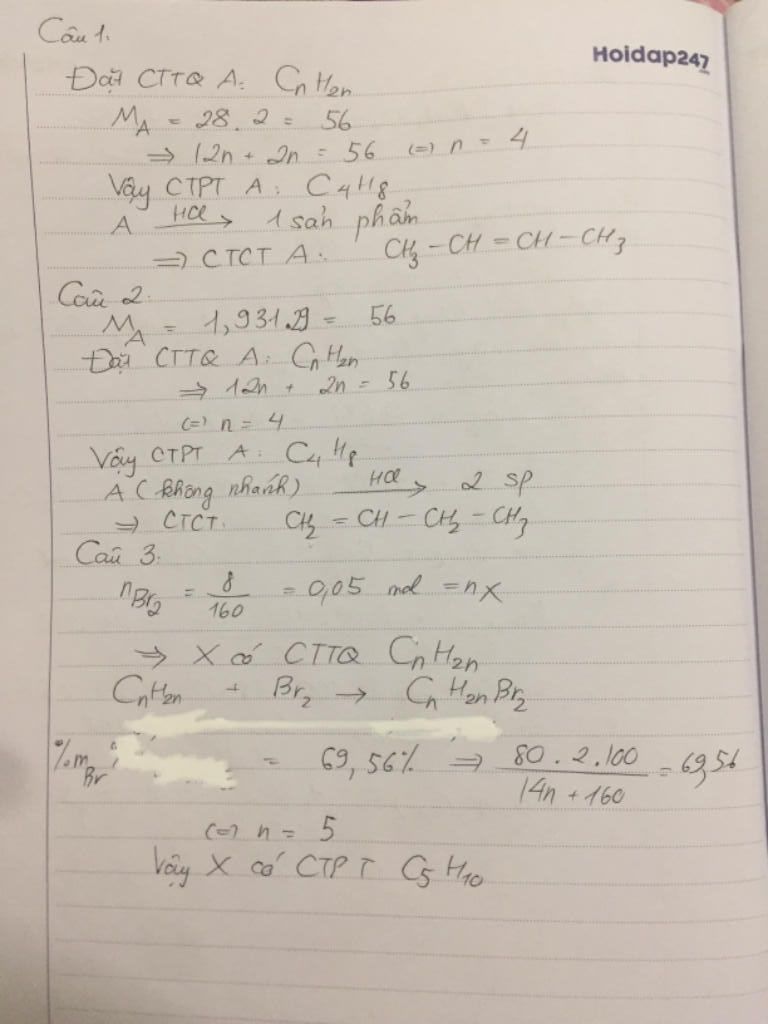 Câu 1.
Hoidap247
Đặt CTTQ A: CnH2n
MA = 28.2 = 56
⇒ 12n + 2n = 56 (=) n = 4
Vậy CTPT A: C4H8
A —HCl→ 1 sản phẩm
⇒ CTCT A: CH3-CH=CH-CH3
Câu 2.
MA = 1,931.29 = 56
Đặt CTTQ A: CnH2n
⇒ 12n + 2n = 56
(=) n = 4
Vậy CTPT A: C4H8
A (không nhánh) —HCl→ 2 sp
⇒ CTCT: CH2=CH-CH2-CH3
Câu 3.
nBr2 = 8/160 = 0,05 mol = nX
⇒ X có CTTQ CnH2n
CnH2n + Br2 → CnH2nBr2
%mBr = 69,56% ⇒ 80.2.100/14n+160 = 69,56
(=) n = 5
Vậy X có CTPT C5H10